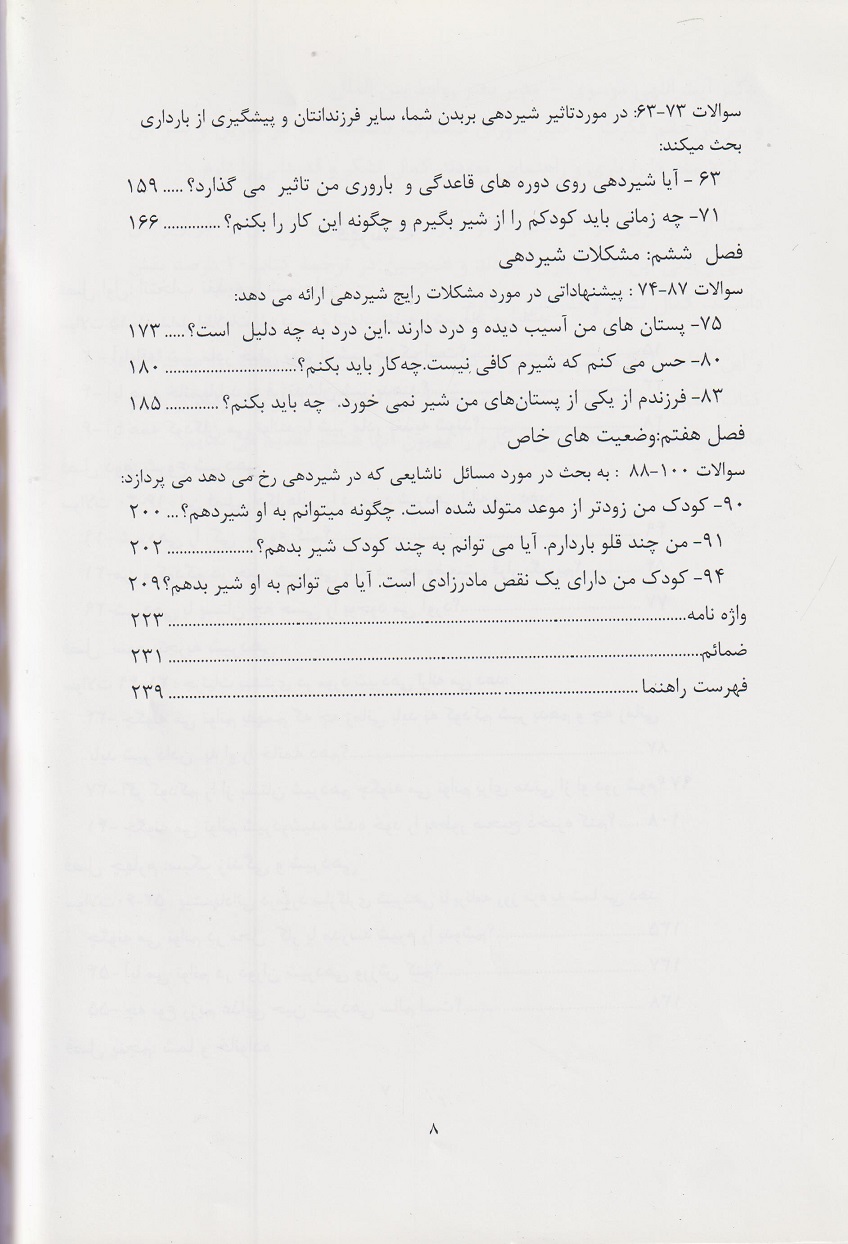 سوالات ۷۳-۶۳: در موردتاثیر شیردهی بربدن شما، سایر فرزندانتان و پیشگیری از بارداری
بحث میکند:
۶۳ - آیا شیردهی روی دوره های قاعدگی و باروری من تاثیر می گذارد؟ ..... ۱۵۹
۷۱- چه زمانی باید کودکم را از شیر بگیرم و چگونه این کار را بکنم؟ .............. ۱۶۶
فصل ششم: مشکلات شیردهی
سوالات ۸۷-۷۴ : پیشنهاداتی در مورد مشکلات رایج شیردهی ارائه می دهد:
۷۵- پستان های من آسیب دیده و درد دارند .این درد به چه دلیل است؟ ..... ۱۷۳
۸۰- حس می کنم که شیرم کافی نیست.چه‌کار باید بکنم؟ ............................... ۱۸۰
۸۳- فرزندم از یکی از پستان‌های من شیر نمی خورد. چه باید بکنم؟ ............. ۱۸۵
فصل هفتم:وضعیت های خاص
سوالات ۱۰۰-۸۸ : به بحث در مورد مسائل ناشایعی که در شیردهی رخ می دهد می پردازد:
۹۰- کودک من زودتر از موعد متولد شده است. چگونه میتوانم به او شیردهم؟ ... ۲۰۰
۹۱- من چند قلو باردارم. آیا می توانم به چند کودک شیر بدهم؟ ..................... ۲۰۲
۹۴- کودک من دارای یک نقص مادرزادی است. آیا می توانم به او شیر بدهم؟ ۲۰۹
واژه نامه ........................................................................ ۲۲۳
ضمائم ........................................................................ ۲۳۱
فهرست راهنما ........................................................................ ۲۳۹
۸